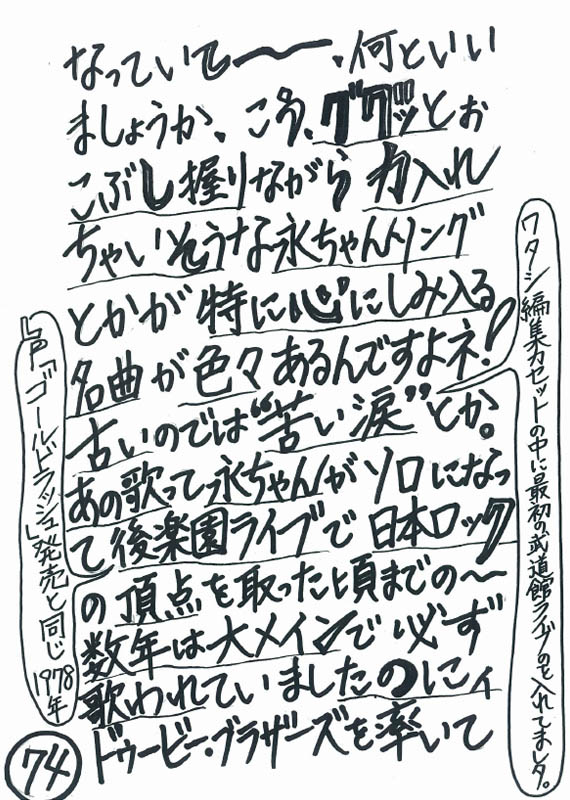 なっていて〜〜、何といい
ましょうか、こう、ググッとお
こぶし握りながら 力入れ
ちゃいそうな永ちゃんソング
とかが 特に心にしみ入る
名曲が色々あるんですよネ!
古いのでは“苦い涙”とか。
あの歌って永ちゃんがソロになっ
て後楽園ライブで日本ロック
の頂点を取った頃までの〜
数年は大メインで必ず
歌われていましたのにィ
ドゥービー・ブラザーズを率いて
ワタシ編集カセットの中に最初の武道館ライブのを入れてましタ。
LP「ゴールドラッシュ」発売と同じ1978年
74